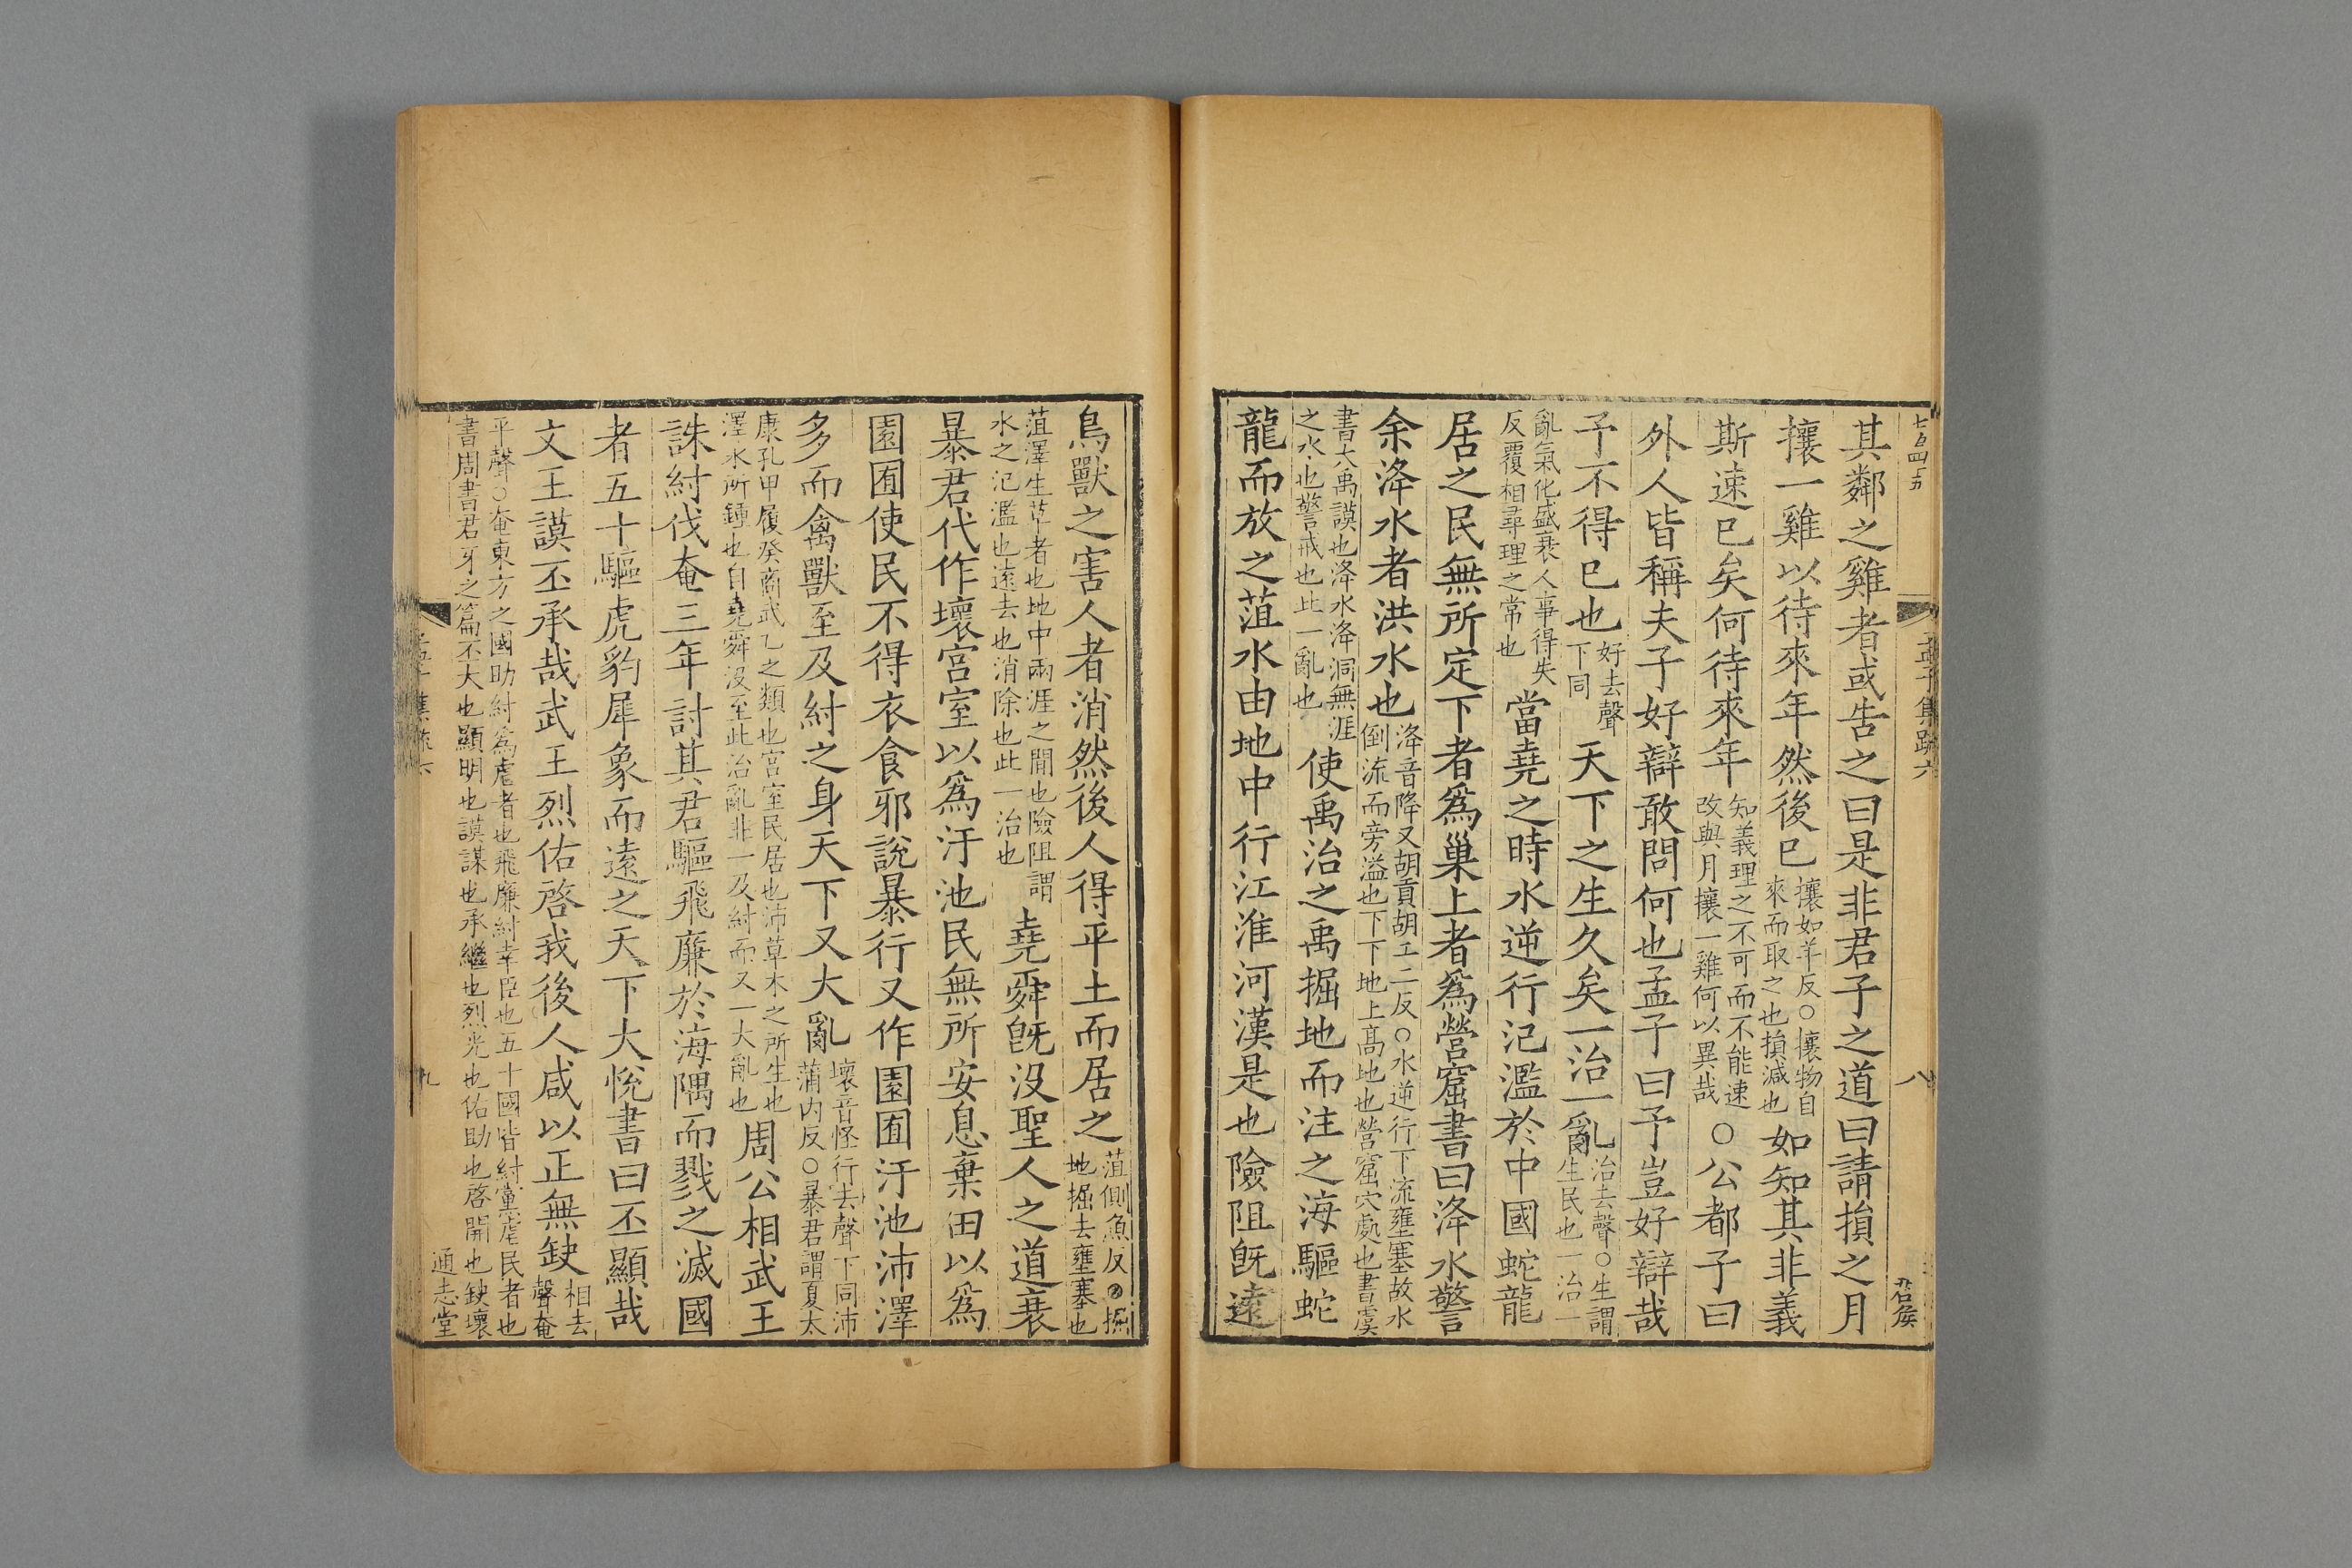 其鄰之雞者或告之曰是非君子之道曰請損之月
攘一雞以待來年然後已攘如羊反○攘物自來而取之也損減也如知其非義
斯速已矣何待來年知義理之不可而不能速改與月攘一雞何以異哉○公都子曰
外人皆稱夫子好辯敢問何也孟子曰予豈好辯哉
予不得已也好去聲下同天下之生久矣一治一亂治去聲○生謂生民也一治一
亂氣化盛衰人事得失反覆相尋理之常也當堯之時水逆行氾濫於中國蛇龍
居之民無所定下者爲巢上者爲營窟書曰洚水警
余洚水者洪水也洚音降又胡貢胡工二反○水逆行下流壅塞故水倒流而旁溢也下下地上高地也營窟穴處也書虞
書大禹謨也洚水洚洞無涯之水也警戒也此一亂也使禹治之禹掘地而注之海驅蛇
龍而放之菹水由地中行江淮河漢是也險阻旣遠
孟子集疏六
八
君侯
鳥獸之害人者消然後人得平土而居之菹側魚反○掘地掘去壅塞也
菹澤生草者也地中兩涯之閒也險阻謂水之氾濫也遠去也消除也此一治也堯舜旣沒聖人之道衰
暴君代作壞宮室以爲汙池民無所安息棄田以爲
園囿使民不得衣食邪說暴行又作園囿汙池沛澤
多而禽獸至及紂之身天下又大亂壞音怪行去聲下同沛蒲內反○暴君謂夏太
康孔甲履癸商武乙之類也宮室民居也沛草木之所生也澤水所鍾也自堯舜沒至此治亂非一及紂而又一大亂也周公相武王
誅紂伐奄三年討其君驅飛廉於海隅而戮之滅國
者五十驅虎豹犀象而遠之天下大悅書曰丕顯哉
文王謨丕承哉武王烈佑啓我後人咸以正無缺相去聲奄
平聲○奄東方之國助紂爲虐者也飛廉紂幸臣也五十國皆紂黨虐民者也書周書君牙之篇丕大也顯明也謨謀也承繼也烈光也佑助也啓開也缺壞
九
通志堂